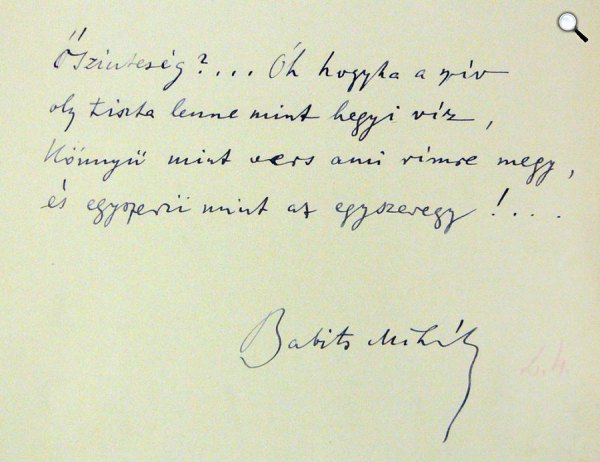 Őszinteség?... Óh hogyha a szív
oly tiszta lenne mint hegyi víz,
könnyü mint vers ami rímre megy,
és egyszerü mint az egyszeregy!....
Babits Mihály